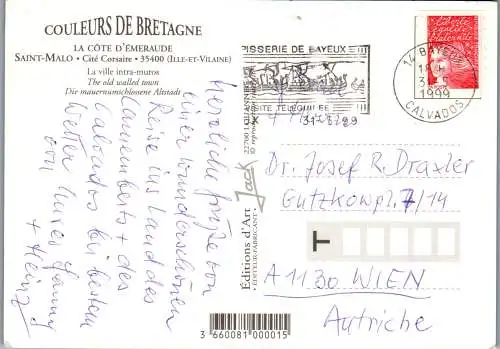 COULEURS DE BRETAGNE
LA CÔTE D'ÉMERAUDE
SAINT-MALO • Cité Corsaire • 35400 (ILLE-ET-VILAINE)
La ville intra-muros
The old walled town
Die mauerumschlossene Altstadt
Herzliche Grüße von
einer wunderschönen
Reise ins Land des
Camemberts + des
Calvados bei bestem
Wetter
von
+ Heinz
PISSERIE DE BAYEUX
VISITE TELEGUIDEE
31-3-99
14 BAYEUX
1999
CALVADOS
liberté
égalité
fraternité
Dr. Josef R. Draxler
Gutzkowpl. 7/14
A 1130 WIEN
Autriche
T
Editions d'Art Jack
• ÉDITEUR-FABRICANT •
3 660081 000015